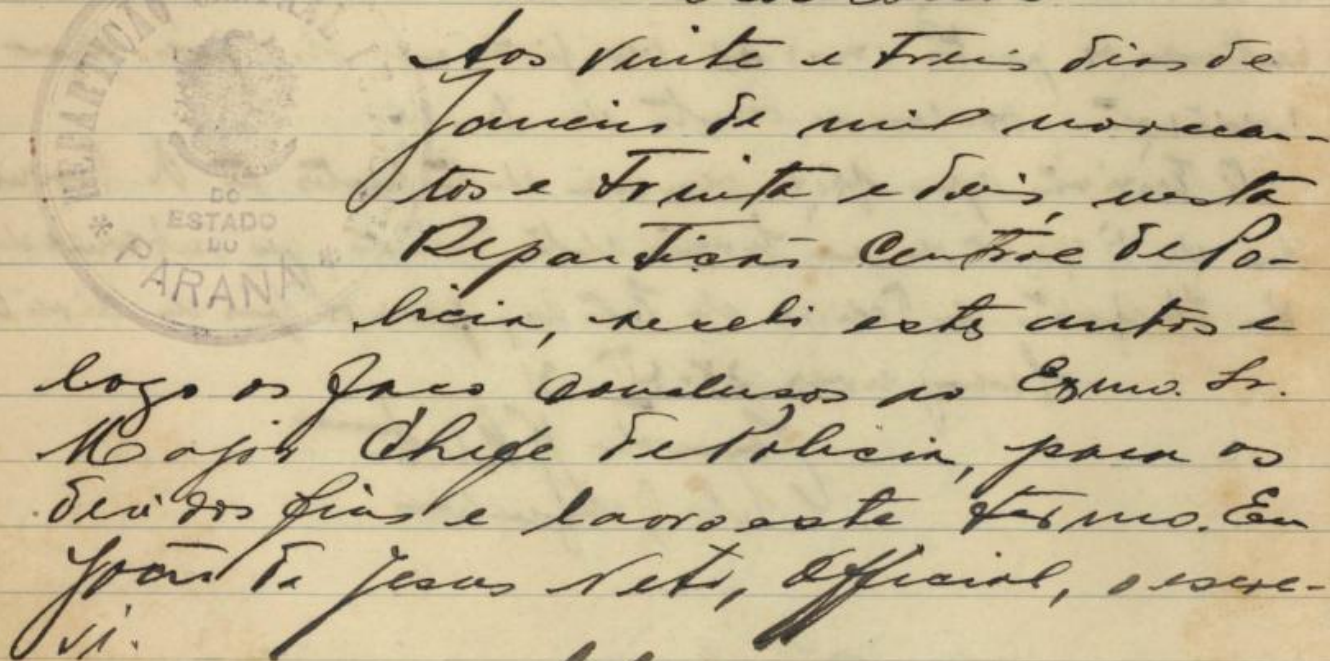 REPARTIÇÃO CENTRAL
DO
ESTADO
DO
* PARANÁ *
Aos vinte e treis dias de
Janeiro de mil novecen-
tos e trinta e dois, nesta
Repartição Central de Po-
licia, recebi estes autos e
logo os faço conclusos ao Exmo. Sr.
Major Chefe de Policia, para os
devidos fins e lavro este termo. Eu
João de Jesus Neto, Official, o escre-
vi.